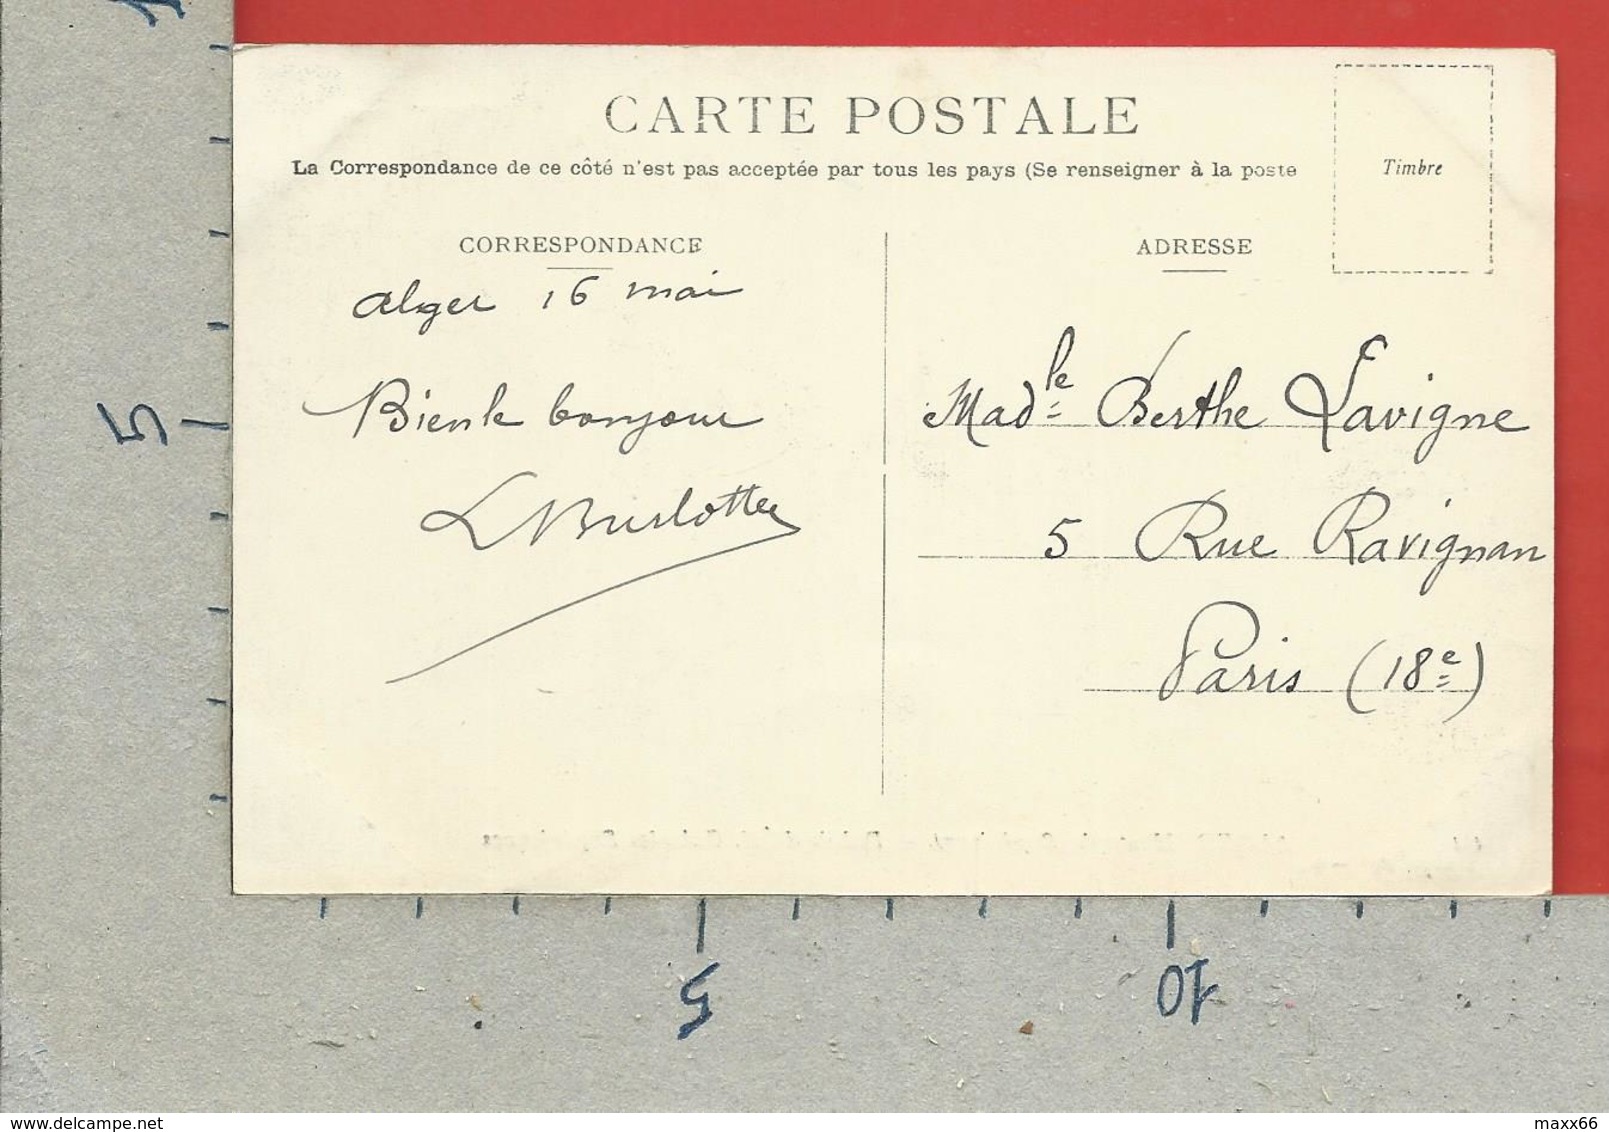 CARTE POSTALE
La Correspondance de ce côté n'est pas acceptée par tous les pays (Se renseigner à la poste
Timbre
CORRESPONDANCE
Alger 16 mai
bonjour
ADRESSE
Madle Berthe Lavigne
5 Rue Ravignan
Paris (18e)
5
5
10
www.delcampe.net
maxx66